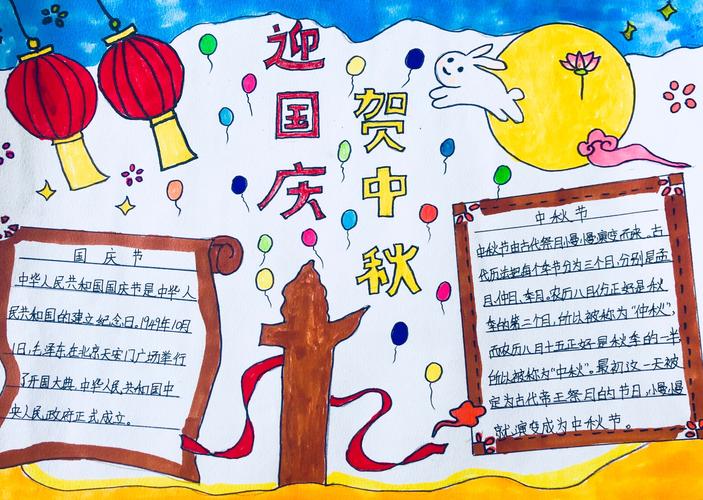 迎国庆
贺中秋
国庆节
中华人民共和国国庆节是中华人
民共和国的建立纪念日。1949年10月
1日,毛泽东在北京天安门广场举行
了开国大典,中华人民共和国中
央人民政府正式成立。
中秋节
中秋节由古代祭月慢慢演变而来。古
代历法把每个季节分为三个月,分别是孟
月、仲月、季月。农历八月份正好是秋
季的第三个月,所以被称为“仲秋”,
而农历八月十五正好是秋季的一半
所以被称为“中秋”。最初这一天被
定为古代帝王祭月的节日,慢慢
就演变成为中秋节。